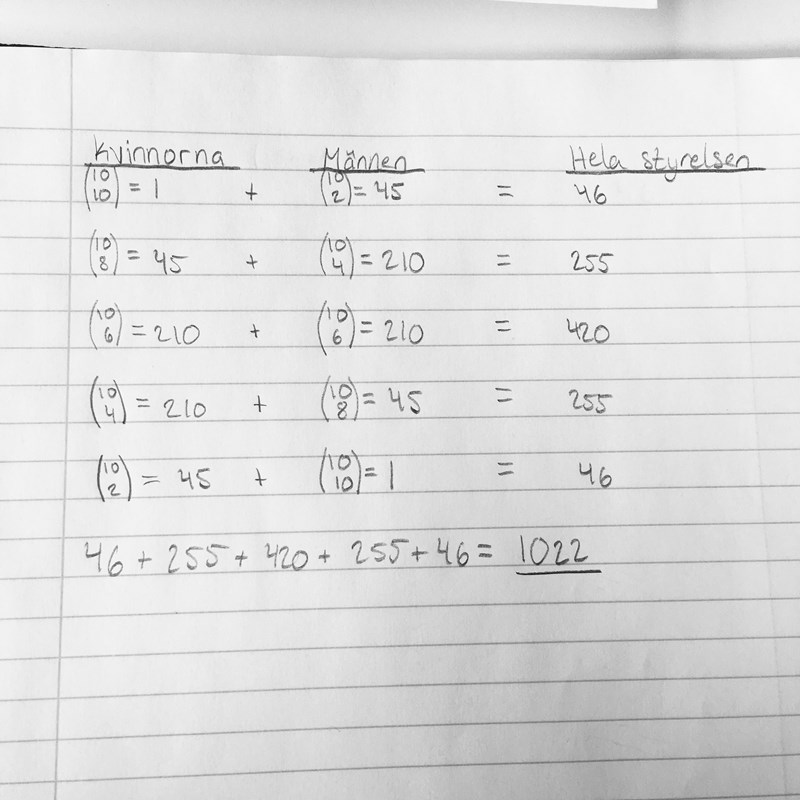 Kvinnorna Männen Hela styrelsen
(10 10) = 1 + (10 2) = 45 = 46
(10 8) = 45 + (10 4) = 210 = 255
(10 6) = 210 + (10 6) = 210 = 420
(10 4) = 210 + (10 8) = 45 = 255
(10 2) = 45 + (10 10) = 1 = 46
46 + 255 + 420 + 255 + 46 = 1022